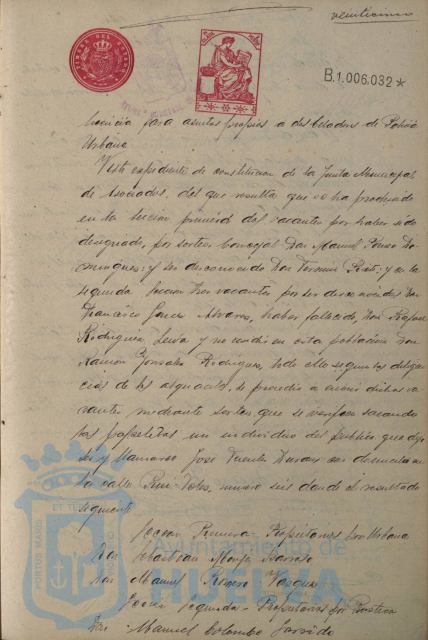 veinticinco
B.1.006.032*
licencia para asuntos propios a dos celadores de Policía
Urbana
Visto expediente de constitucion de la Junta Municipal
de Asociados, del que resulta que se ha producido
en la seccion primera dos vacantes por haber sido
designado, por sorteo Concejal Don Manuel Ponce Do
minguez y ser desconocido Don Fermin y en la
segunda seccion tres vacantes por ser desconocido Don
Francisco Garcia Alvarez, haber fallecido, Don Rafael
Rodriguez Leiva y no residir en esta población Don
Ramon Gonzalez Rodriguez, todo ello segun las diligen
cias de los alguaciles, se procedio a cubrir dichas va
cantes mediante sorteo, que se verifico sacando
las papeletas un individuo del publico que dijo
ser y llamarse José Fuentes Duran con domicilio en
la calle numero seis dando el resultado
siguiente
Seccion Primera Propietarios por Urbana
Don Sebastian Monge Barroso
Don Manuel Romero Vazquez
Seccion Segunda - Propietarios por Rustica
Don Manuel Colombo Garrido
Ayuntamiento de
HUELVA
PORTUS MARIS